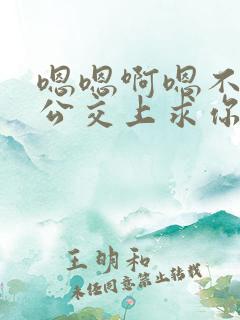 嗯嗯啊嗯不
公交上求你
王明和
未经同意禁止转载